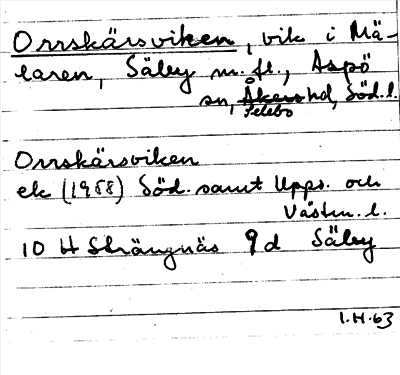 Orrskärsviken, vik i Mä-
laren, Säby m. fl., Aspö
sn, Åkers hd, Söd. l.
Selebo
Orrskärsviken
ek (1958) Söd. samt Upps. och
Västm. l.
10 H Strängnäs 9 d Säby
1.H.63